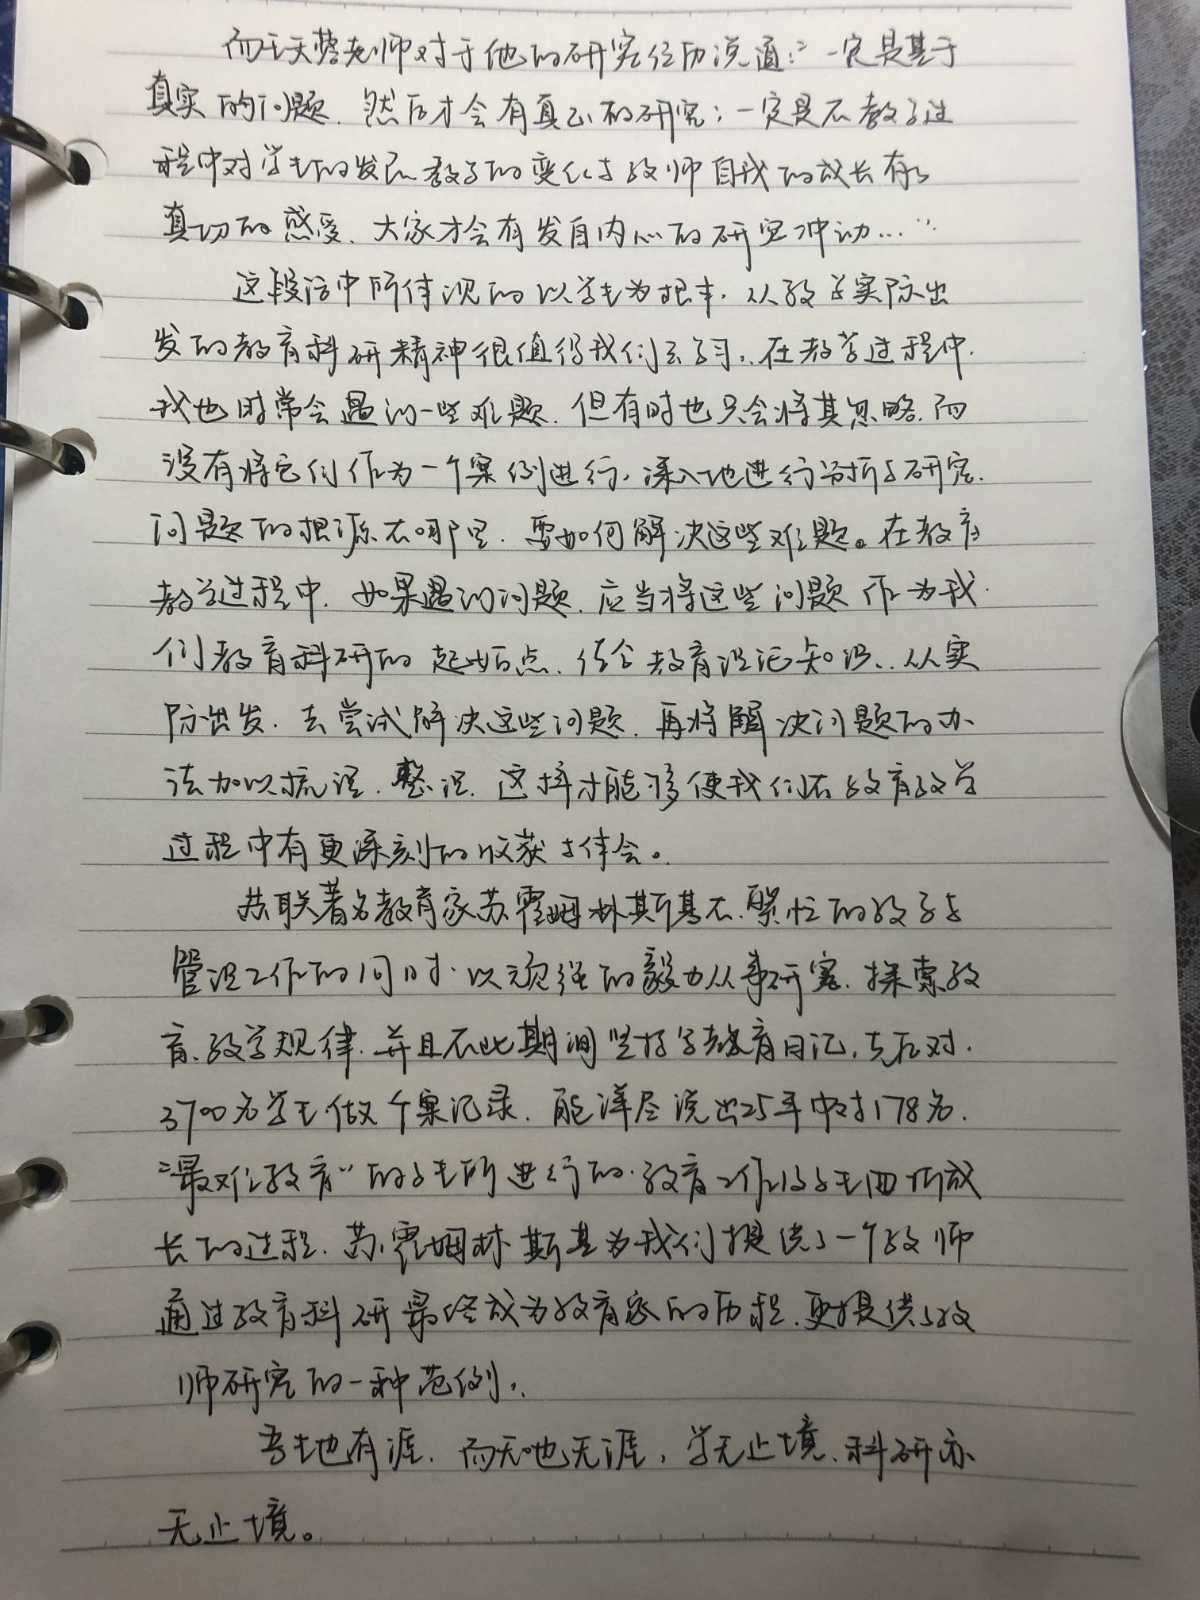 而王天蓉老师对于他的研究经历说道：“一定是基于
真实的问题，然后才会有真正的研究；一定是在教学过
程中对学生的发展、教学的变化与教师自我的成长有了
真切的感受，大家才会有发自内心的研究冲动…”
这段话中所体现的以学生为根本，从教学实际出
发的教育科研精神很值得我们去学习。在教学过程中，
我也时常会遇到一些难题，但有时也只会将其忽略，而
没有将它们作为一个案例进行，深入地进行分析与研究，
问题的根源在哪里，要如何解决这些难题。在教育
教学过程中，如果遇到问题，应当将这些问题作为我
们教育科研的起始点，结合教育理论知识，从实
际出发，去尝试解决这些问题，再将解决问题的办
法加以梳理、整理，这样才能够使我们在教育教学
过程中有更深刻的收获与体会。
苏联著名教育家苏霍姆林斯基在繁忙的教学与
管理工作的同时，以顽强的毅力从事研究，探索教
育、教学规律，并且在此期间坚持写教育日记，先后对
3700名学生做个案记录，能详尽说出25年中对178名
“最难教育”的学生所进行的教育工作以及学生曲折成
长的过程，苏霍姆林斯基为我们提供了一个教师
通过教育科研最终成为教育家的历程，更提供了教
师研究的一种范例。
吾生也有涯，而知也无涯，学无止境，科研亦
无止境。